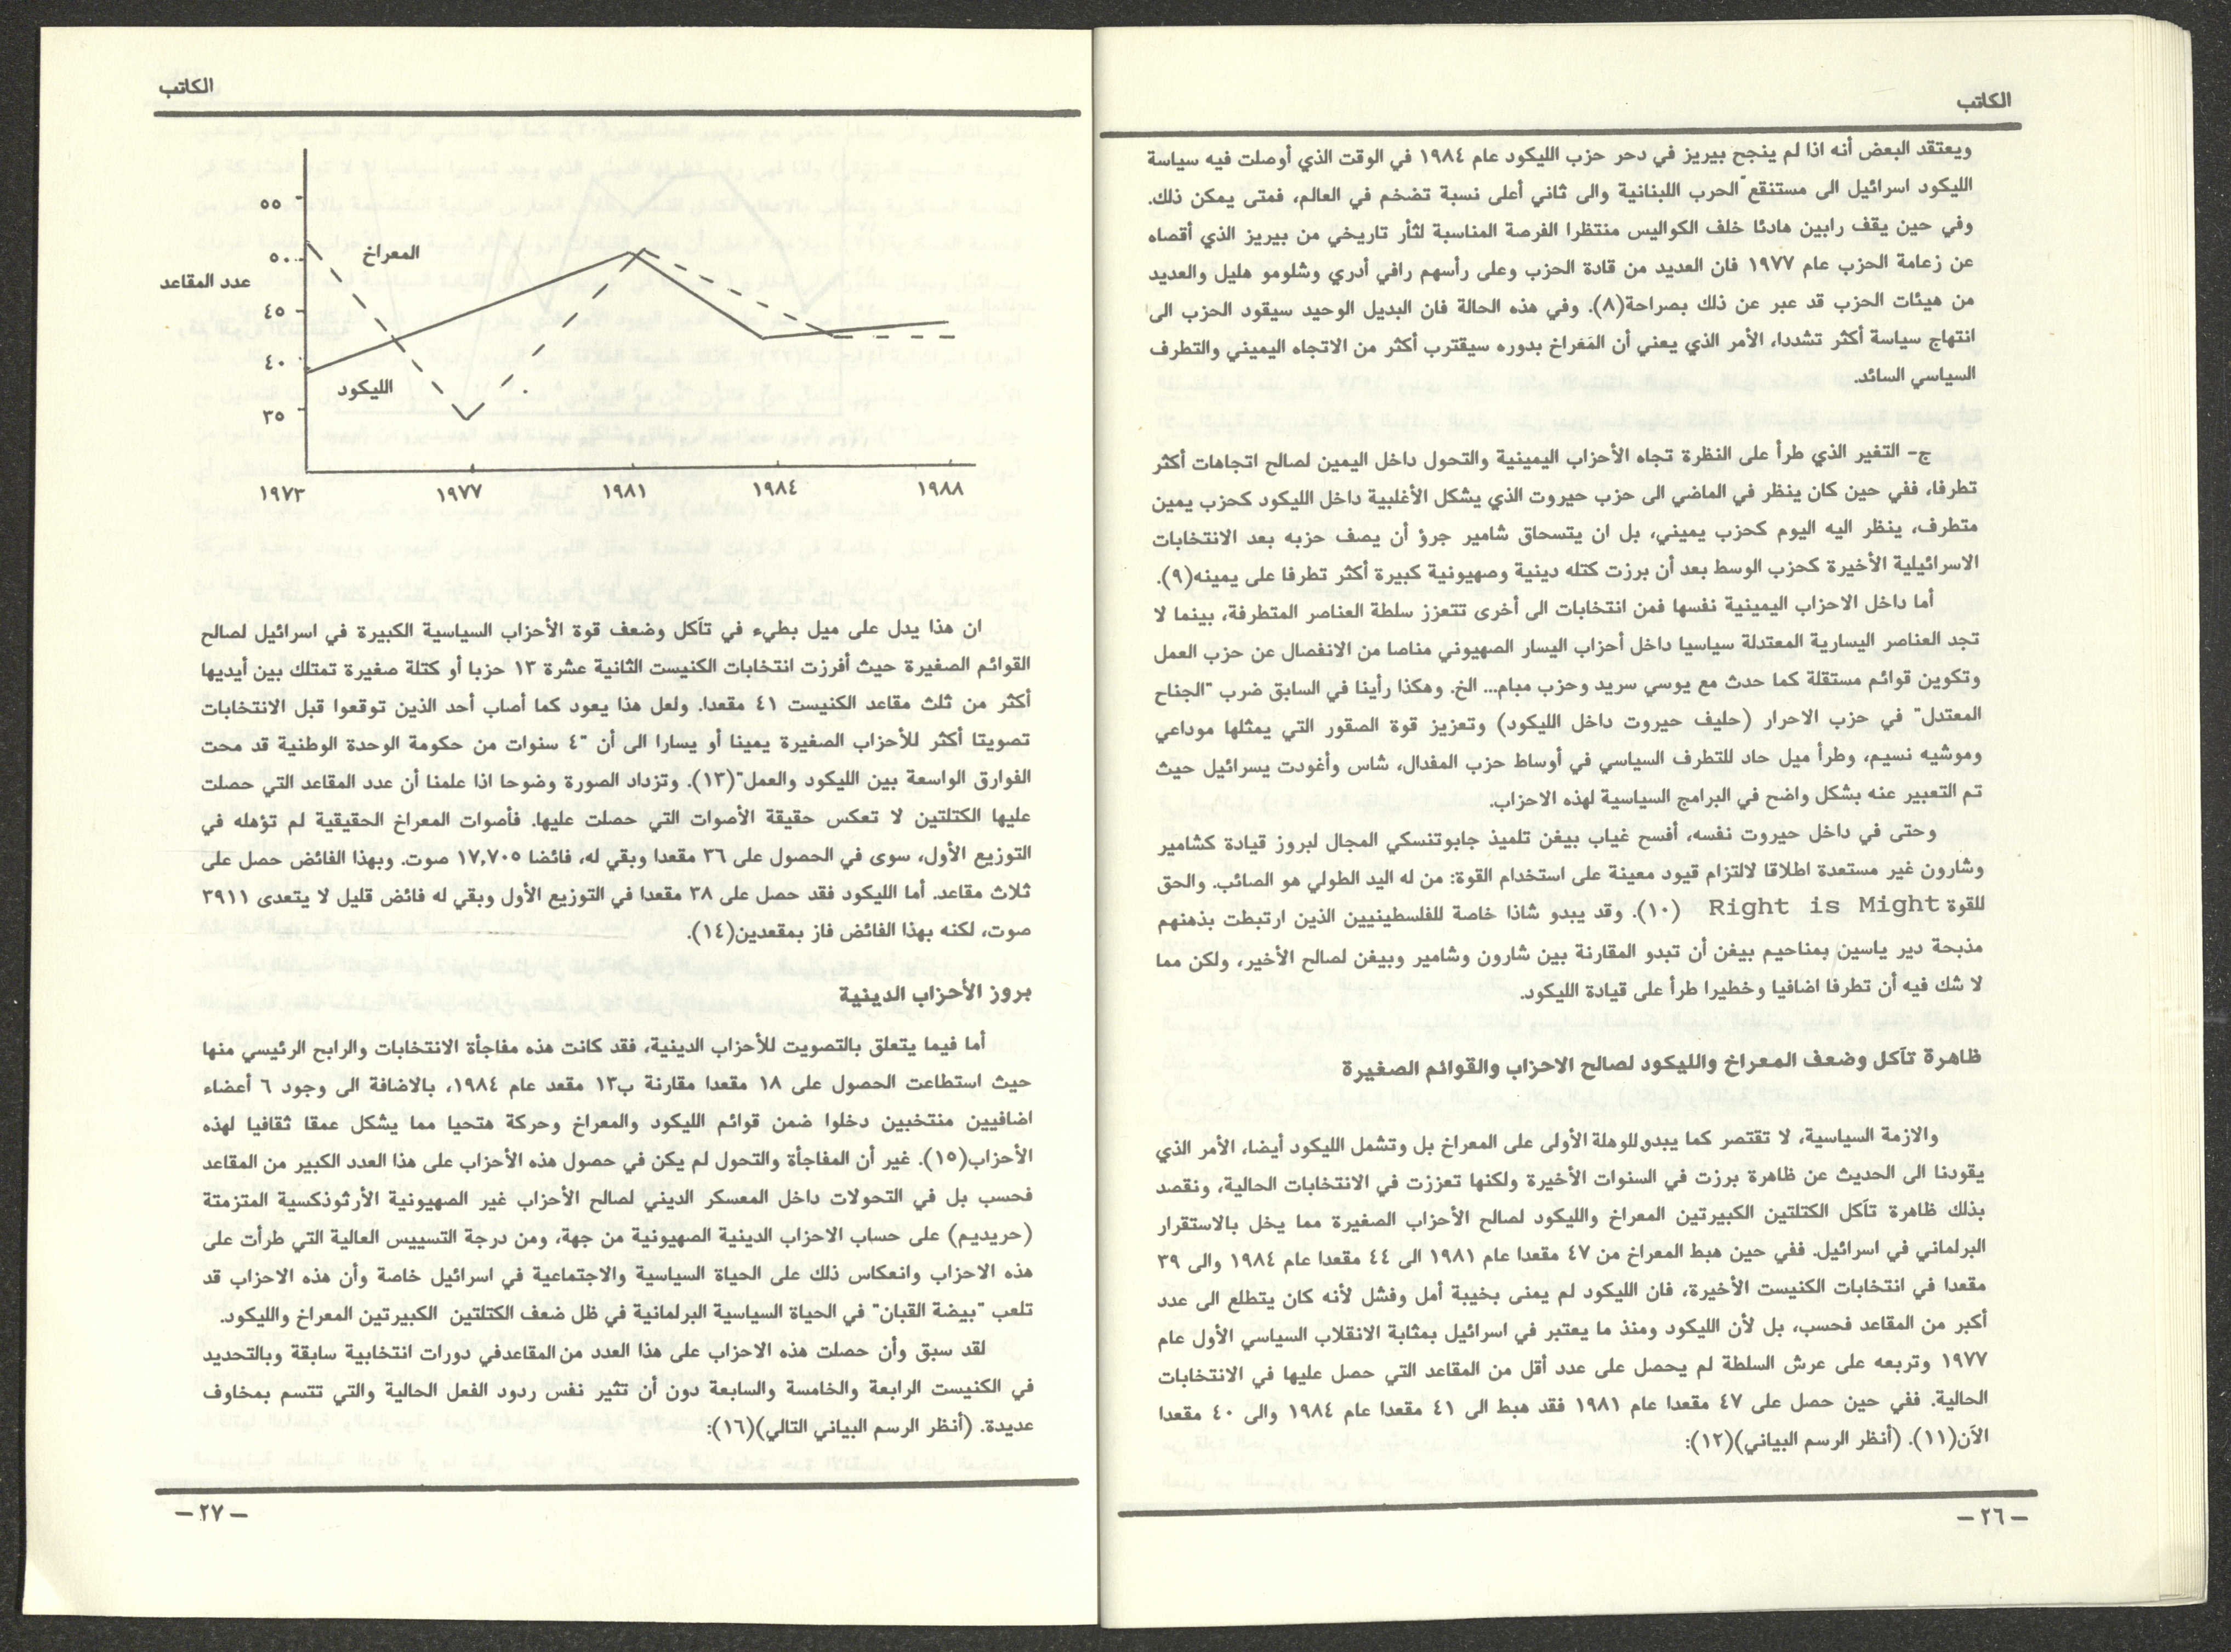 الكاتب
ويعتقد البعض أنه اذا لم ينجح بيريز في دحر حزب الليكود عام ١٩٨٤ في الوقت الذي أوصلت فيه سياسة
الليكود اسرائيل الى مستنقع الحرب اللبنانية والى ثاني أعلى نسبة تضخم في العالم، فمتى يمكن ذلك.
وفي حين يقف رابين هادئا خلف الكواليس منتظرا الفرصة المناسبة لثأر تاريخي من بيريز الذي أقصاه
عن زعامة الحزب عام ١٩٧٧ فان العديد من قادة الحزب وعلى رأسهم رافي أدري وشلومو هليل والعديد
من هيئات الحزب قد عبر عن ذلك بصراحة(٨). وفي هذه الحالة فان البديل الوحيد سيقود الحزب الى
انتهاج سياسة أكثر تشددا، الأمر الذي يعني أن المَعَراخ بدوره سيقترب أكثر من الاتجاه اليميني والتطرف
السياسي السائد.
ج- التغير الذي طرأ على النظرة تجاه الأحزاب اليمينية والتحول داخل اليمين لصالح اتجاهات أكثر
تطرفا، ففي حين كان ينظر في الماضي الى حزب حيروت الذي يشكل الأغلبية داخل الليكود كحزب يمين
متطرف، ينظر اليه اليوم كحزب يميني، بل ان يتسحاق شامير جرؤ أن يصف حزبه بعد الانتخابات
الاسرائيلية الأخيرة كحزب الوسط بعد أن برزت كتله دينية وصهيونية كبيرة أكثر تطرفا على يمينه(٩).
أما داخل الاحزاب اليمينية نفسها فمن انتخابات الى أخرى تتعزز سلطة العناصر المتطرفة، بينما لا
تجد العناصر اليسارية المعتدلة سياسيا داخل أحزاب اليسار الصهيوني مناصا من الانفصال عن حزب العمل
وتكوين قوائم مستقلة كما حدث مع يوسي سريد وحزب مبام... الخ. وهكذا رأينا في السابق ضرب "الجناح
المعتدل" في حزب الاحرار (حليف حيروت داخل الليكود) وتعزيز قوة الصقور التي يمثلها موداعي
وموشيه نسيم، وطرأ ميل حاد للتطرف السياسي في أوساط حزب المفدال، شاس وأغودت يسرائيل حيث
تم التعبير عنه بشكل واضح في البرامج السياسية لهذه الاحزاب.
وحتى في داخل حيروت نفسه، أفسح غياب بيغن تلميذ جابوتنسكي المجال لبروز قيادة كشامير
وشارون غير مستعدة اطلاقا لالتزام قيود معينة على استخدام القوة: من له اليد الطولي هو الصائب. والحق
للقوة Right is Might (١٠). وقد يبدو شاذا خاصة للفلسطينيين الذين ارتبطت بذهنهم
مذبحة دير ياسين بمناحيم بيغن أن تبدو المقارنة بين شارون وشامير وبيغن لصالح الأخير، ولكن مما
لا شك فيه أن تطرفا اضافيا وخطيرا طرأ على قيادة الليكود.
ظاهرة تآكل وضعف المعراخ والليكود لصالح الاحزاب والقوائم الصغيرة
والازمة السياسية، لا تقتصر كما يبدو للوهلة الأولى على المعراخ بل وتشمل الليكود أيضا، الأمر الذي
يقودنا الى الحديث عن ظاهرة برزت في السنوات الأخيرة ولكنها تعززت في الانتخابات الحالية، ونقصد
بذلك ظاهرة تآكل الكتلتين الكبيرتين المعراخ والليكود لصالح الأحزاب الصغيرة مما يخل بالاستقرار
البرلماني في اسرائيل. ففي حين هبط المعراخ من ٤٧ مقعدا عام ١٩٨١ الى ٤٤ مقعدا عام ١٩٨٤ والى ٣٩
مقعدا في انتخابات الكنيست الأخيرة، فان الليكود لم يمنى بخيبة أمل وفشل لأنه كان يتطلع الى عدد
أكبر من المقاعد فحسب، بل لأن الليكود ومنذ ما يعتبر في اسرائيل بمثابة الانقلاب السياسي الأول عام
١٩٧٧ وتربعه على عرش السلطة لم يحصل على عدد أقل من المقاعد التي حصل عليها في الانتخابات
الحالية. ففي حين حصل على ٤٧ مقعدا عام ١٩٨١ فقد هبط الى ٤١ مقعدا عام ١٩٨٤ والى ٤٠ مقعدا
الآن(١١). (أنظر الرسم البياني)(١٢):
– ٢٦ –
الكاتب
٥٥
٥٠
المعراخ
عدد المقاعد
٤٥
٤٠
الليكود
٣٥
١٩٧٣
١٩٧٧
١٩٨١
١٩٨٤
١٩٨٨
ان هذا يدل على ميل بطيء في تآكل وضعف قوة الأحزاب السياسية الكبيرة في اسرائيل لصالح
القوائم الصغيرة حيث أفرزت انتخابات الكنيست الثانية عشرة ١٣ حزبا أو كتلة صغيرة تمتلك بين أيديها
أكثر من ثلث مقاعد الكنيست ٤١ مقعدا. ولعل هذا يعود كما أصاب أحد الذين توقعوا قبل الانتخابات
تصويتا أكثر للأحزاب الصغيرة يمينا أو يسارا الى أن "٤ سنوات من حكومة الوحدة الوطنية قد محت
الفوارق الواسعة بين الليكود والعمل"(١٣). وتزداد الصورة وضوحا اذا علمنا أن عدد المقاعد التي حصلت
عليها الكتلتين لا تعكس حقيقة الأصوات التي حصلت عليها. فأصوات المعراخ الحقيقية لم تؤهله في
التوزيع الأول، سوى في الحصول على ٣٦ مقعدا وبقي له، فائضا ١٧,٧٠٥ صوت. وبهذا الفائض حصل على
ثلاث مقاعد. أما الليكود فقد حصل على ٣٨ مقعدا في التوزيع الأول وبقي له فائض قليل لا يتعدى ٣٩١١
صوت، لكنه بهذا الفائض فاز بمقعدين(١٤).
بروز الأحزاب الدينية
أما فيما يتعلق بالتصويت للأحزاب الدينية، فقد كانت هذه مفاجأة الانتخابات والرابح الرئيسي منها
حيث استطاعت الحصول على ١٨ مقعدا مقارنة ب١٣ مقعد عام ١٩٨٤، بالاضافة الى وجود ٦ أعضاء
اضافيين منتخبين دخلوا ضمن قوائم الليكود والمعراخ وحركة هتحيا مما يشكل عمقا ثقافيا لهذه
الأحزاب(١٥). غير أن المفاجأة والتحول لم يكن في حصول هذه الأحزاب على هذا العدد الكبير من المقاعد
فحسب بل في التحولات داخل المعسكر الديني لصالح الأحزاب غير الصهيونية الأرثوذكسية المتزمتة
(حريديم) على حساب الاحزاب الدينية الصهيونية من جهة، ومن درجة التسييس العالية التي طرأت على
هذه الاحزاب وانعكاس ذلك على الحياة السياسية والاجتماعية في اسرائيل خاصة وأن هذه الاحزاب قد
تلعب "بيضة القبان" في الحياة السياسية البرلمانية في ظل ضعف الكتلتين الكبيرتين المعراخ والليكود.
لقد سبق وأن حصلت هذه الاحزاب على هذا العدد من المقاعدفي دورات انتخابية سابقة وبالتحديد
في الكنيست الرابعة والخامسة والسابعة دون أن تثير نفس ردود الفعل الحالية والتي تتسم بمخاوف
عديدة. (أنظر الرسم البياني التالي)(١٦):
– ٢٧ –